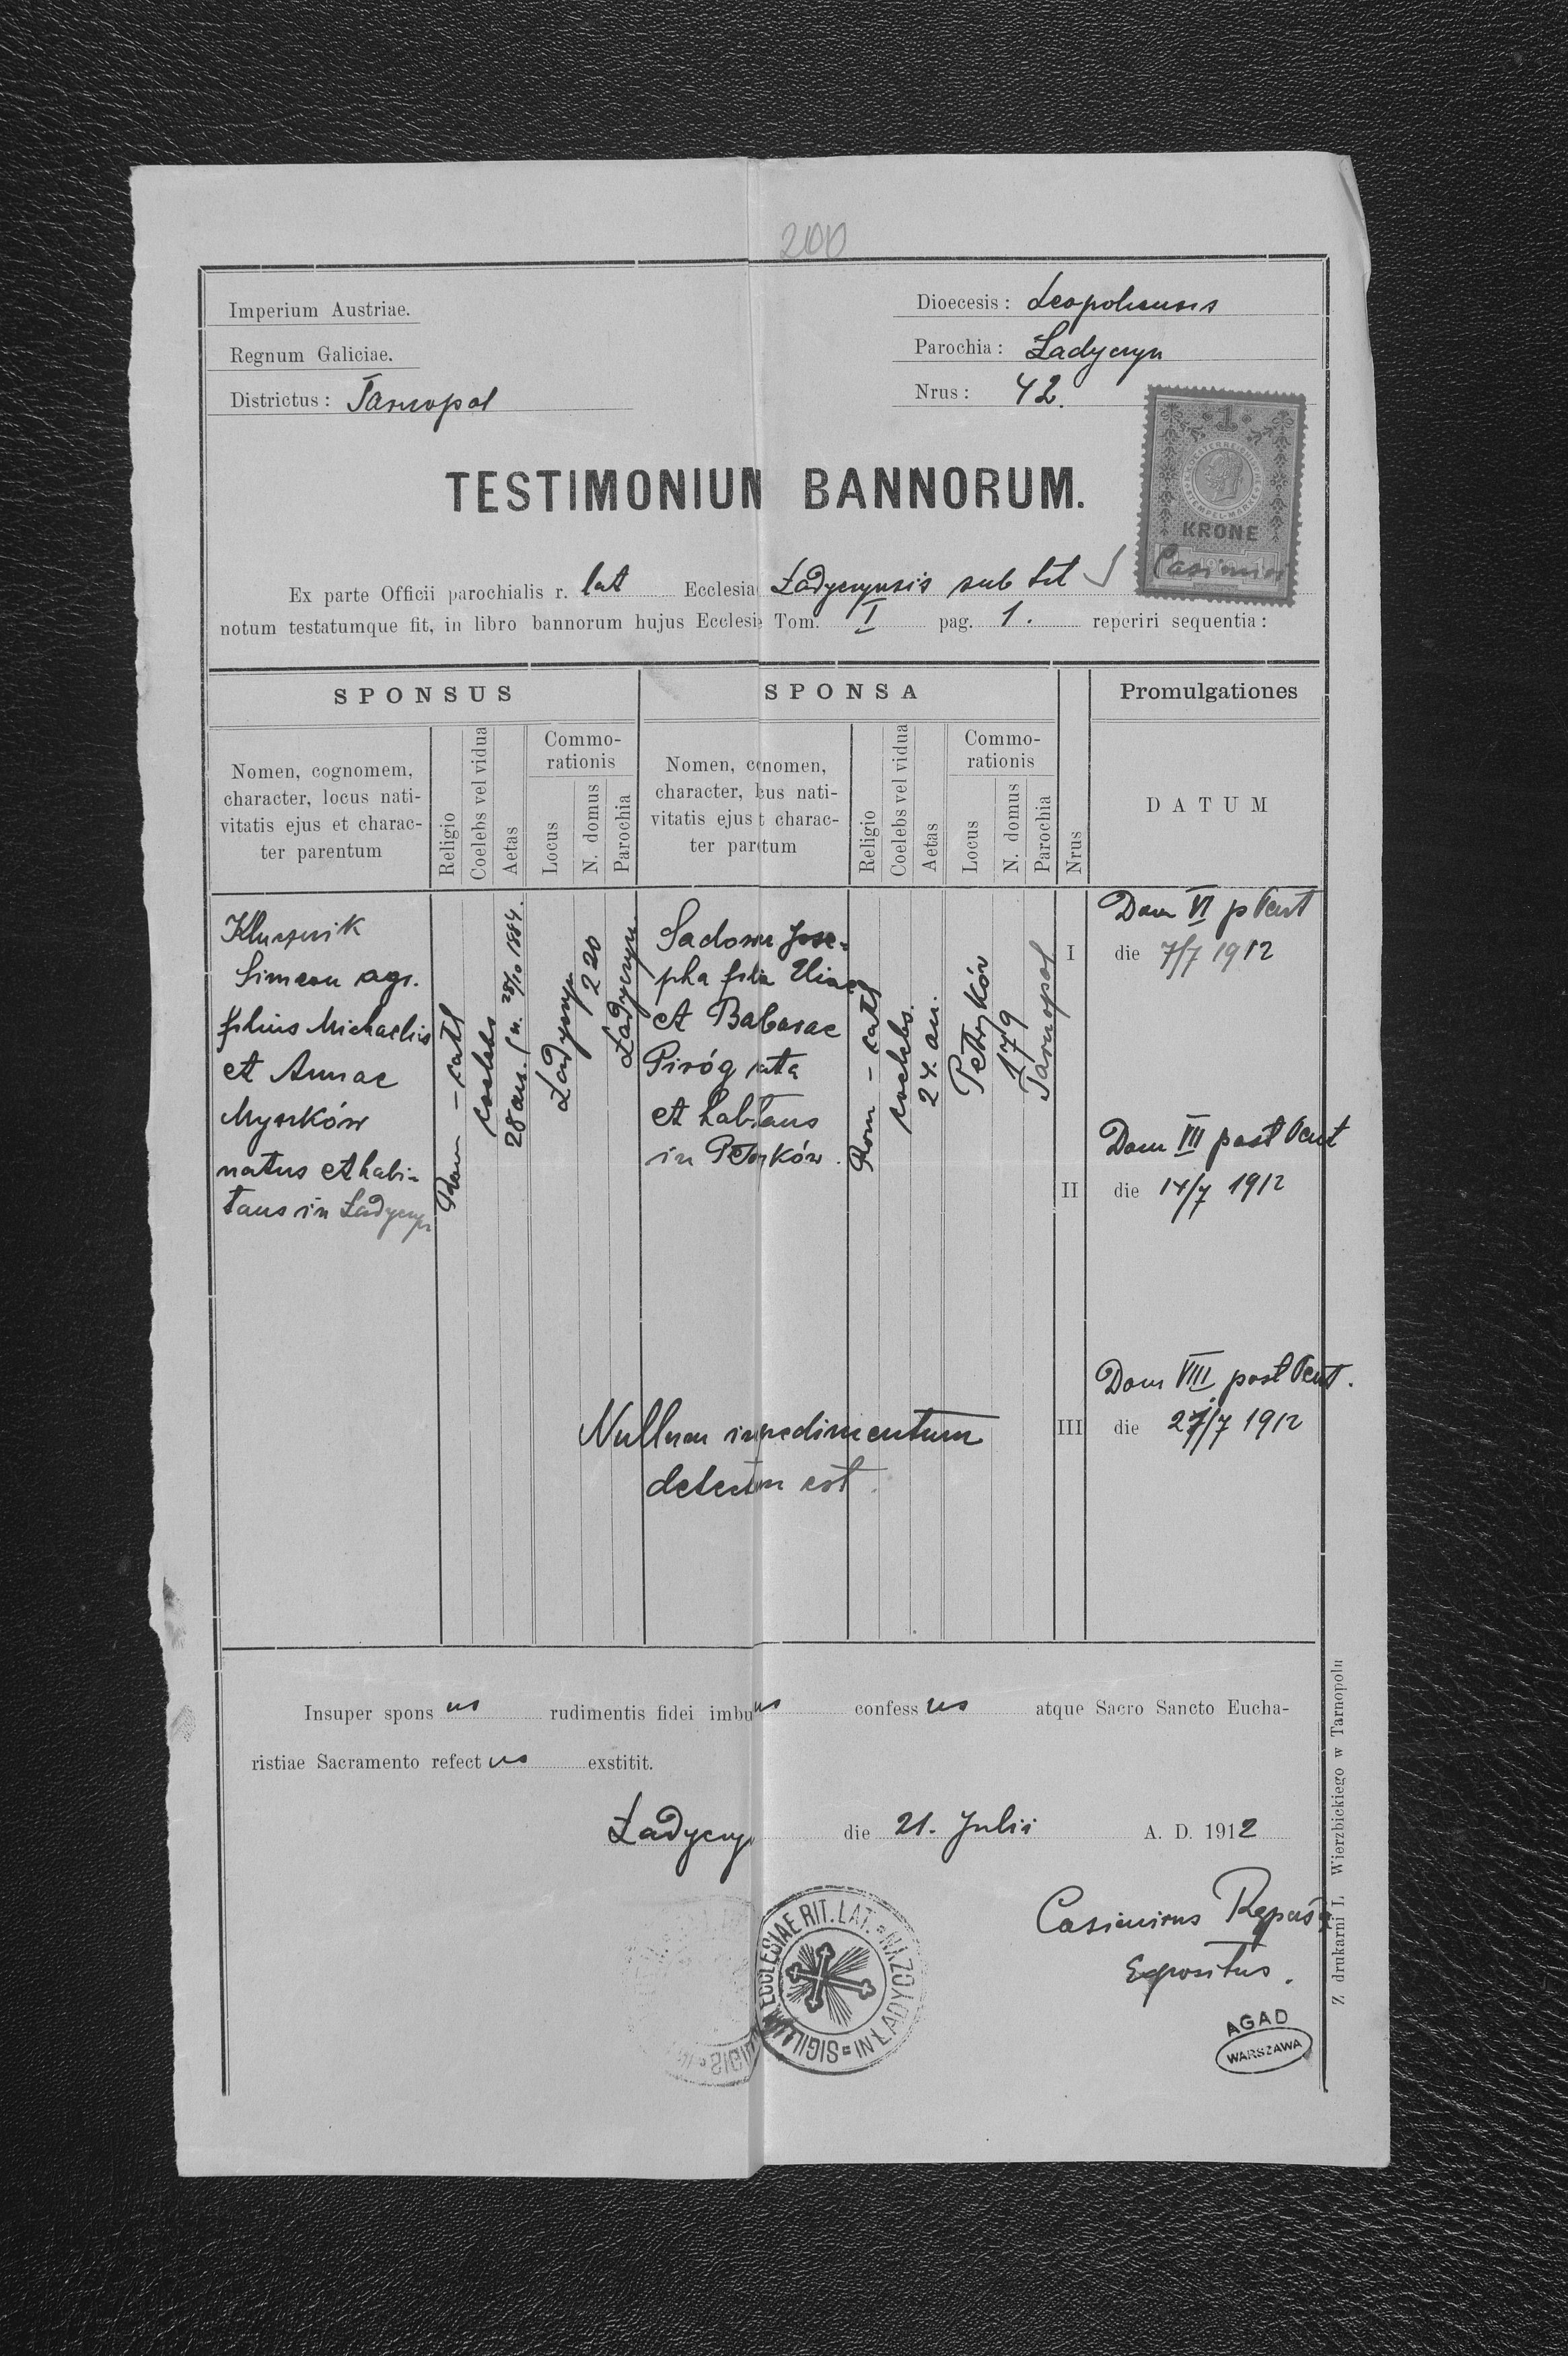 200
Imperium Austriae.
Regnum Galiciae.
Districtus: Tarnopol
Dioecesis: Leopoliensis
Parochia: Ładyczyn
Nrus: 42.
TESTIMONIUM BANNORUM.
1
KRONE
Casimiri
Ex parte Officii parochialis r. lat Ecclesia Ładyczynsis sub tit S
notum testatumque fit, in libro bannorum hujus Ecclesi Tom. I pag. 1. reperiri sequentia:
SPONSUS
SPONSA
Promulgationes
Nomen, cognomem,
character, locus nati-
vitatis ejus et charac-
ter parentum
Religio
Coelebs vel vidua
Aetas
Commo-
rationis
Locus
N. domus
Parochia
Nomen, cnomen,
character, lcus nati-
vitatis ejus t charac-
ter partum
Religio
Coelebs vel vidua
Aetas
Commo-
rationis
Locus
N. domus
Parochia
Nrus
DATUM
Klucznik
Simeon agr.
filius Michaelis
et Annae
Myszków
natus et habi-
tans in Ładyczyn
Rom - cath
coelebs
28 an. (n. 28/10 1884.
Ładyczyn
220
Ładyczyn
Sadowa Jose-
pha filia Eliae
et Babarae
Piróg nata
et habitans
in Petryków.
Rom - cath
coelebs.
24. an.
Petryków
179
Tarnopol
I
Dom VI p Pent
die 7/7 1912
II
Dom VII post Pent
die 14/7 1912
III
Dom VIII post Pent.
die 21/7 1912
Nullum impedimentum
detectum est.
Insuper spons us rudimentis fidei imbu us confess us atque Sacro Sancto Eucha-
ristiae Sacramento refect us exstitit.
Ładyczyn die 21. Julii A. D. 1912
SIGILLUM ECCLESIAE RIT. LAT. = NAZOY = IN ŁADY
Casimirus
Expositus.
AGAD
WARSZAWA
Z drukarni L Wierzbickiego w Tarnopolu